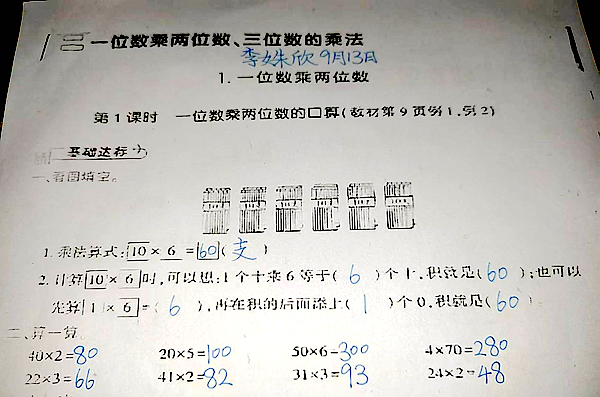 二 一位数乘两位数、三位数的乘法
李姝欣 9月13日
1. 一位数乘两位数
第1课时 一位数乘两位数的口算(教材第9页例1、例2)
基础达标
一、看图填空。
1. 乘法算式:10×6=60(支)
2. 计算10×6时,可以想:1个十乘6等于(6)个十,积就是(60);也可以
先算1×6=(6),再在积的后面添上(1)个0,积就是(60)
二、算一算
40×2=80 20×5=100 50×6=300 4×70=280
22×3=66 41×2=82 31×3=93 24×2=48